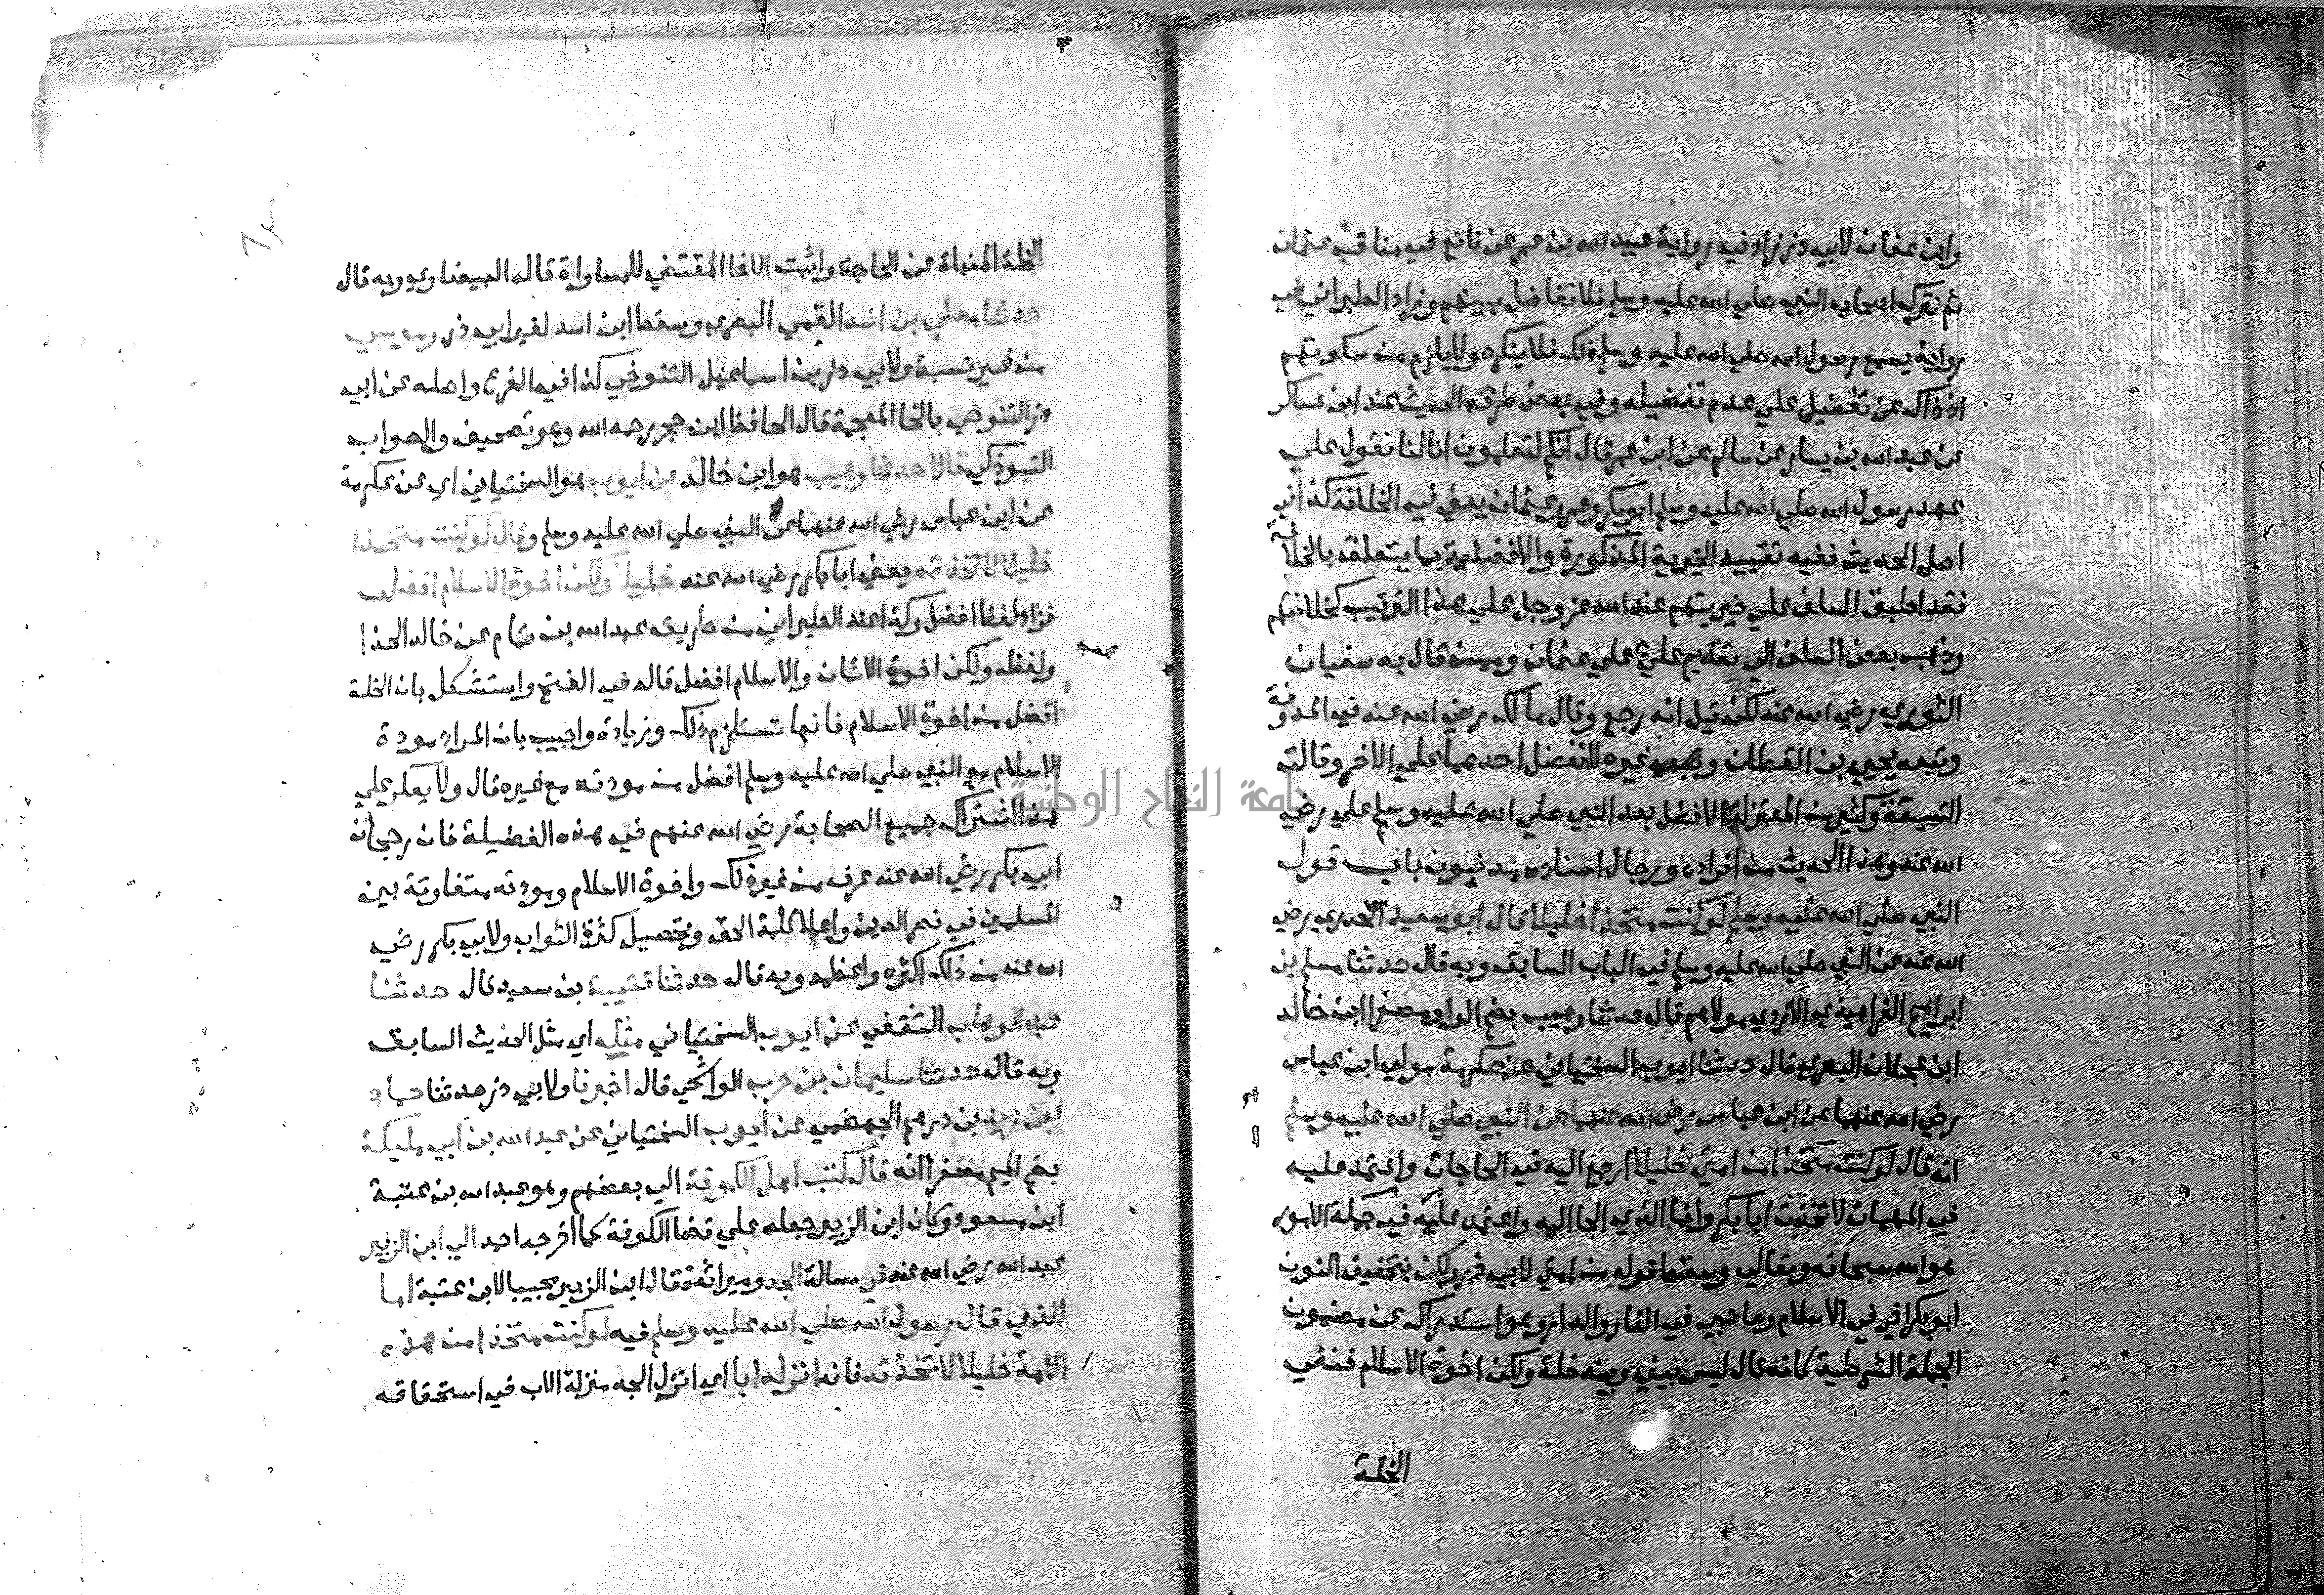 وابن عفان لابي ذر زاد في رواية عبيد الله بن عمر عن نافع في مناقب عثمان
ثم نترك اصحاب النبي صلي الله عليه وسلم فلا تفاضل بينهم وزاد الطبراني في
رواية يسمع رسول الله صلي الله عليه وسلم ذلك فلا ينكره ولا يلزم من سكوتهم
اذ ذاك عن تفضيل علي عدم تفضيله وفي بعض طرق الحديث عند ابن عساكر
عن عبد الله بن يسار عن سالم عن ابن عمر قال انكم لتعلمون انا كنا نقول علي
عهد رسول الله صلي الله عليه وسلم ابو بكر وعمر وعثمان يعني في الخلافة كذا في
اصل الحديث ففيه تقييد الخيرية المذكورة والافضلية بما يتعلق بالخلافة
فقد اطبق السلف علي خيريتهم عند الله عز وجل علي هذا الترتيب كخلافتهم
وذهب بعض السلف الي تقديم علي علي عثمان وممن قال به سفيان
الثوري رضي الله عنه لكن قيل انه رجع وقال مالك رضي الله عنه في المدونة
وتبعه يحيي بن القطان وغيره لا نفضل احدهما علي الاخر وقالت
الشيعة وكثير من المعتزلة الافضل بعد النبي صلي الله عليه وسلم علي رضي
الله عنه وهذا الحديث من افراده ورجال اسناده مدنيون باب قول
النبي صلي الله عليه وسلم لو كنت متخذا خليلا قال ابو سعيد الخدري رضي
الله عنه عن النبي صلي الله عليه وسلم في الباب السابق وبه قال حدثنا مسلم بن
ابراهيم الفراهيدي الازدي مولاهم قال حدثنا وهيب بضم الواو مصغرا ابن خالد
ابن عجلان البصري قال حدثنا ايوب السختياني عن عكرمة مولي ابن عباس
رضي الله عنهما عن ابن عباس رضي الله عنهما عن النبي صلي الله عليه وسلم
انه قال لو كنت متخذا من امتي خليلا ارجع اليه في الحاجات واعتمد عليه
في المهمات لاتخذت ابا بكر وانما الذي الجا اليه واعتمد عليه في جملة الامور
هو الله سبحانه وتعالي وسقط قوله من امتي لابي ذر ولكن بتخفيف النون
ابو بكر اخي في الاسلام وصاحبي في الغار والدار وهو استدراك عن مضمون
الجملة الشرطية كانه قال ليس بيني وبينه خلة ولكن اخوة الاسلام فنفي
الخلة
الخلة المنباة عن الحاجة واثبت الاخا المقتضي للمساواة قاله البيضاوي وبه قال
حدثنا معلي بن اسد القمي البصري وسقط ابن اسد لغير ابي ذر وموسي
من غير نسبة ولابي ذر بن اسماعيل التنوخي كذا في الفرع واصله عن ابي
ذر التنوخي بالخا المعجمة قال الحافظ ابن حجر رحمه الله وهو تصحيف والصواب
التبوذكي قالا حدثنا وهيب هو ابن خالد عن ايوب هو السختياني اي عن عكرمة
عن ابن عباس رضي الله عنهما عن النبي صلي الله عليه وسلم وقال لو كنت متخذا
خليلا لاتخذته يعني ابا بكر رضي الله عنه خليلا ولكن اخوة الاسلام افضل
فزاد لفظ افضل وكذا عند الطبراني من طريق عبد الله بن تمام عن خالد الحذا
ولفظه ولكن اخوة الايمان والاسلام افضل قاله في الفتح واستشكل بان الخلة
افضل من اخوة الاسلام فانها تستلزم ذلك وزيادة واجيب بان المراد مودة
الاسلام مع النبي صلي الله عليه وسلم افضل من مودته مع غيره قال ولا يعكر علي
هذا اشتراك جميع الصحابة رضي الله عنهم في هذه الفضيلة فان رجحان
ابي بكر رضي الله عنه عرف من غير ذلك واخوة الاسلام ومودته متفاوتة بين
المسلمين في نصر الدين واعلا كلمة الحق وتحصيل كثرة الثواب ولابي بكر رضي
الله عنه من ذلك اكثره واعظمه وبه قال حدثنا قتيبة بن سعيد قال حدثنا
عبد الوهاب الثقفي عن ايوب السختياني مثله اي مثل الحديث السابق
وبه قال حدثنا سليمان بن حرب الواشحي قال اخبرنا ولابي ذر حدثنا حماد
ابن زيد بن درهم الجهضمي عن ايوب السختياني عن عبد الله بن ابي مليكة
بضم الميم مصغرا انه قال كتب اهل الكوفة اي بعضهم وهو عبد الله بن عتبة
ابن مسعود وكان ابن الزبير جعله علي قضا الكوفة كما اخرجه احمد الي ابن الزبير
عبد الله رضي الله عنه في مسالة الجد وميراثه فقال ابن الزبير مجيبا لابن عتبة اما
الذي قال رسول الله صلي الله عليه وسلم فيه لو كنت متخذا من هذه
الامة خليلا لاتخذته فانه انزله ابا اي انزل الجد منزلة الاب في استحقاقه
جامعة النجاح الوطنية